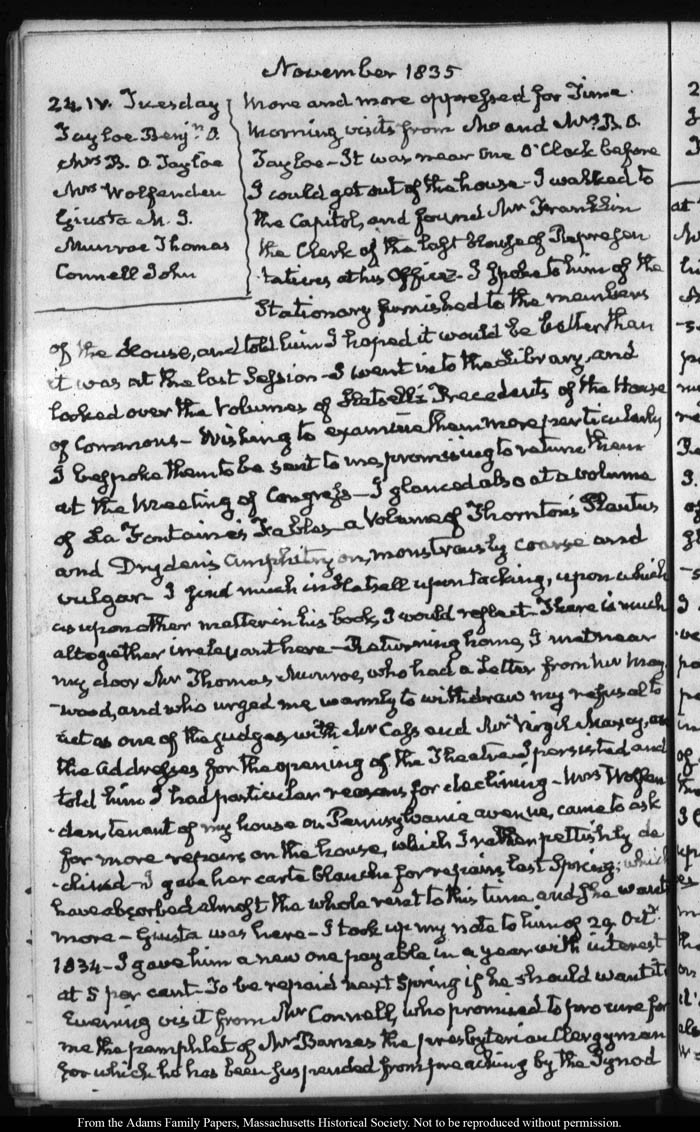 November 1835
24. IV. Tuesday
Tayloe Benjn. O.
Mrs B. O. Tayloe
Mrs Wolfenden
Giusta M. I.
Munroe Thomas
Connell John
More and more oppressed for Time.
Morning visits from Mr and Mrs B. O.
Tayloe - It was near One O'Clock before
I could get out of the house - I walked to
the Capitol, and found Mr Franklin
the Clerk of the last House of Represen
-tatives at his Office - I spoke to him of the
Stationary furnished to the members
of the House, and told him I hoped it would be better than
it was at the last Session - I went into the Library, and
looked over the Volumes of Hatsell's Precedents of the House
of Commons - Wishing to examine them more particularly
I bespoke them to be sent to me promising to return them
at the Meeting of Congress - I glanced also at a volume
of La Fontaine's Fables - a Volume of Thornton's Plautus
and Dryden's Amphitryon, monstrously coarse and
vulgar. I find much in Hatsell upon tacking, upon which
as upon other matter in his book, I would reflect - There is much
altogether irrelevant here - Returning home, I met near
my door Mr Thomas Munroe, who had a Letter from Mr Hay
-wood, and who urged me warmly to withdraw my refusal to
act as one of the judges, with Mr Cass and Mr Virgil Maxcy, on
the addresses for the opening of the Theatre - I persisted, and
told him I had particular reasons for declining - Mrs Wolfen
-den, tenant of my house on Pennsylvania avenue, came to ask
for more repairs on the house, which I rather pettishly de
-clined - I gave her carte blanche for repairs last Spring; which
have absorbed almost the whole rent to this time and she wants
more - Giusta was here - I took up my note to him of 29 Octr
1834 - I gave him a new one payable in a year with interest
at 5 per cent. To be repaid next Spring if he should want it
Evening visit from Mr Connell, who promised to procure for
me the pamphlet of Mr Barnes the presbyterian Clergyman
for which he has been suspended from preaching by the Synod
From the Adams Family Papers, Massachusetts Historical Society. Not to be reproduced without permission.